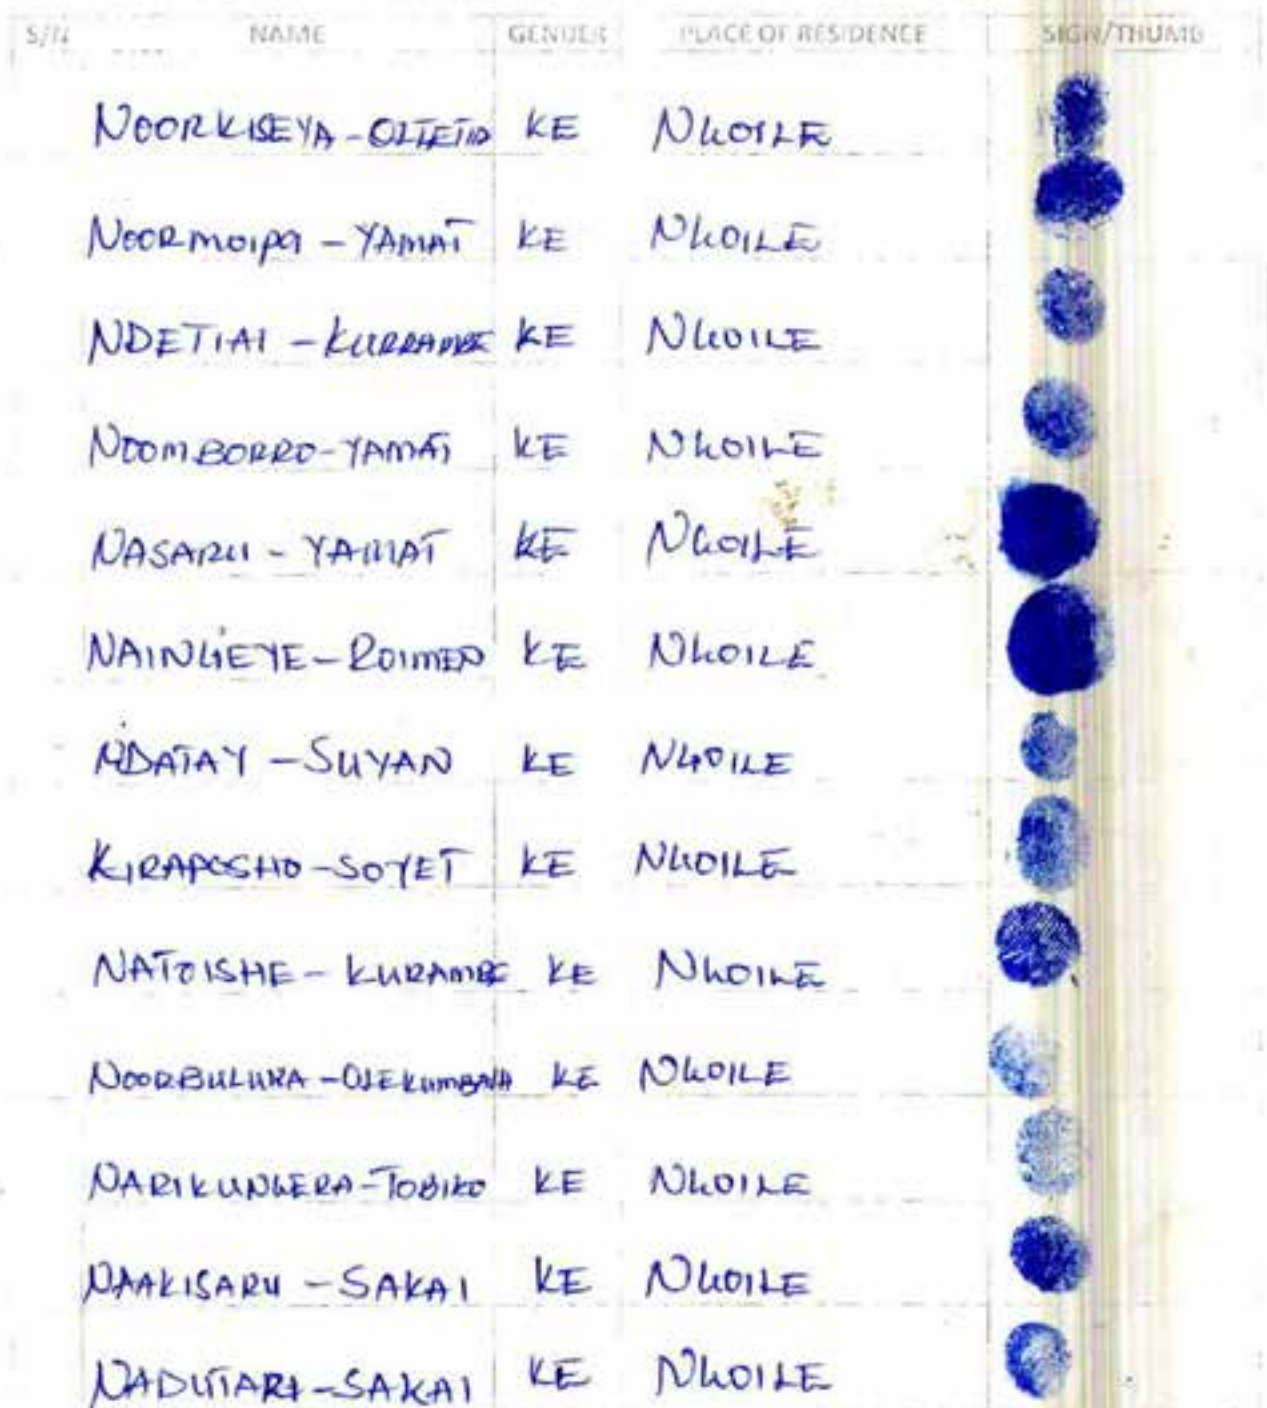 S/N NAME GENDER PLACE OF RESIDENCE SIGN/THUMB
NOORKISEYA - KE NKOILE
NOORMOIPA - YAMAT KE NKOILE
NDETIAI - KURRAMBE KE NKOILE
NOOMBORRO - YAMAT KE NKOILE
NASARU - YAMAT KE NKOILE
NAINKIEYE - ROIMEN KE NKOILE
NDATAY - SUYAN KE NKOILE
KIRAPOSHO - SOYET KE NKOILE
NATOISHE - KURAMBE KE NKOILE
NOORBULUKA - KE NKOILE
NARIKUNKERA - TOBIKO KE NKOILE
NAAKISARU - SAKAI KE NKOILE
NADUTARI - SAKAI KE NKOILE